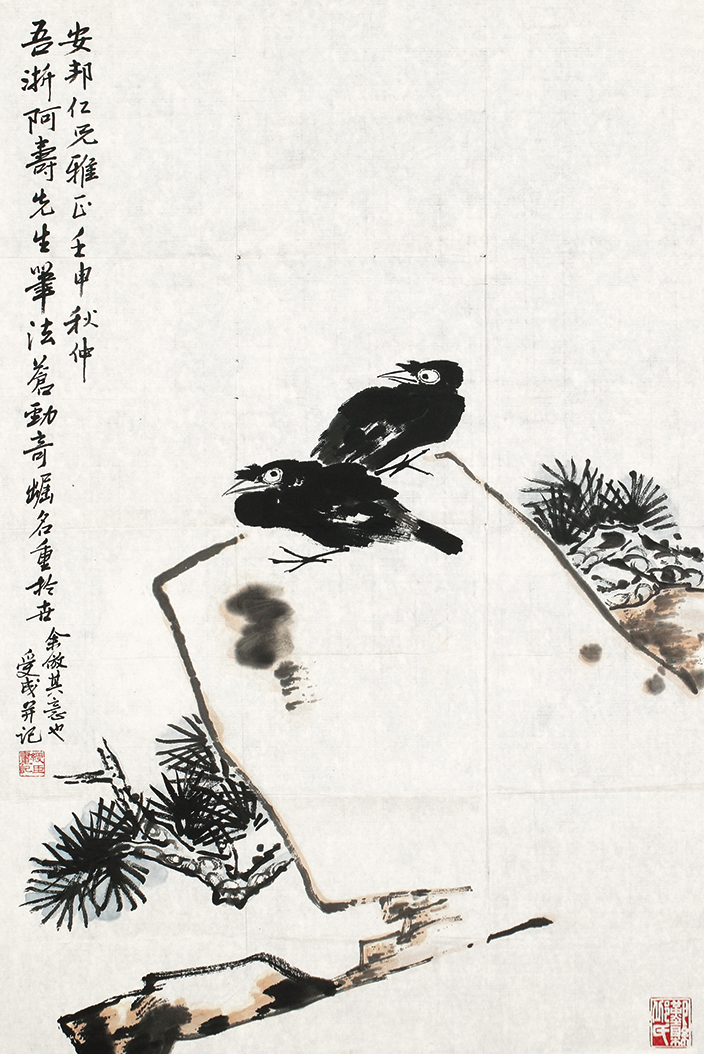 安邦仁兄雅正壬申秋仲
吾浙阿壽先生筆法蒼勁奇崛名重於世
余倣其意也
受成並记